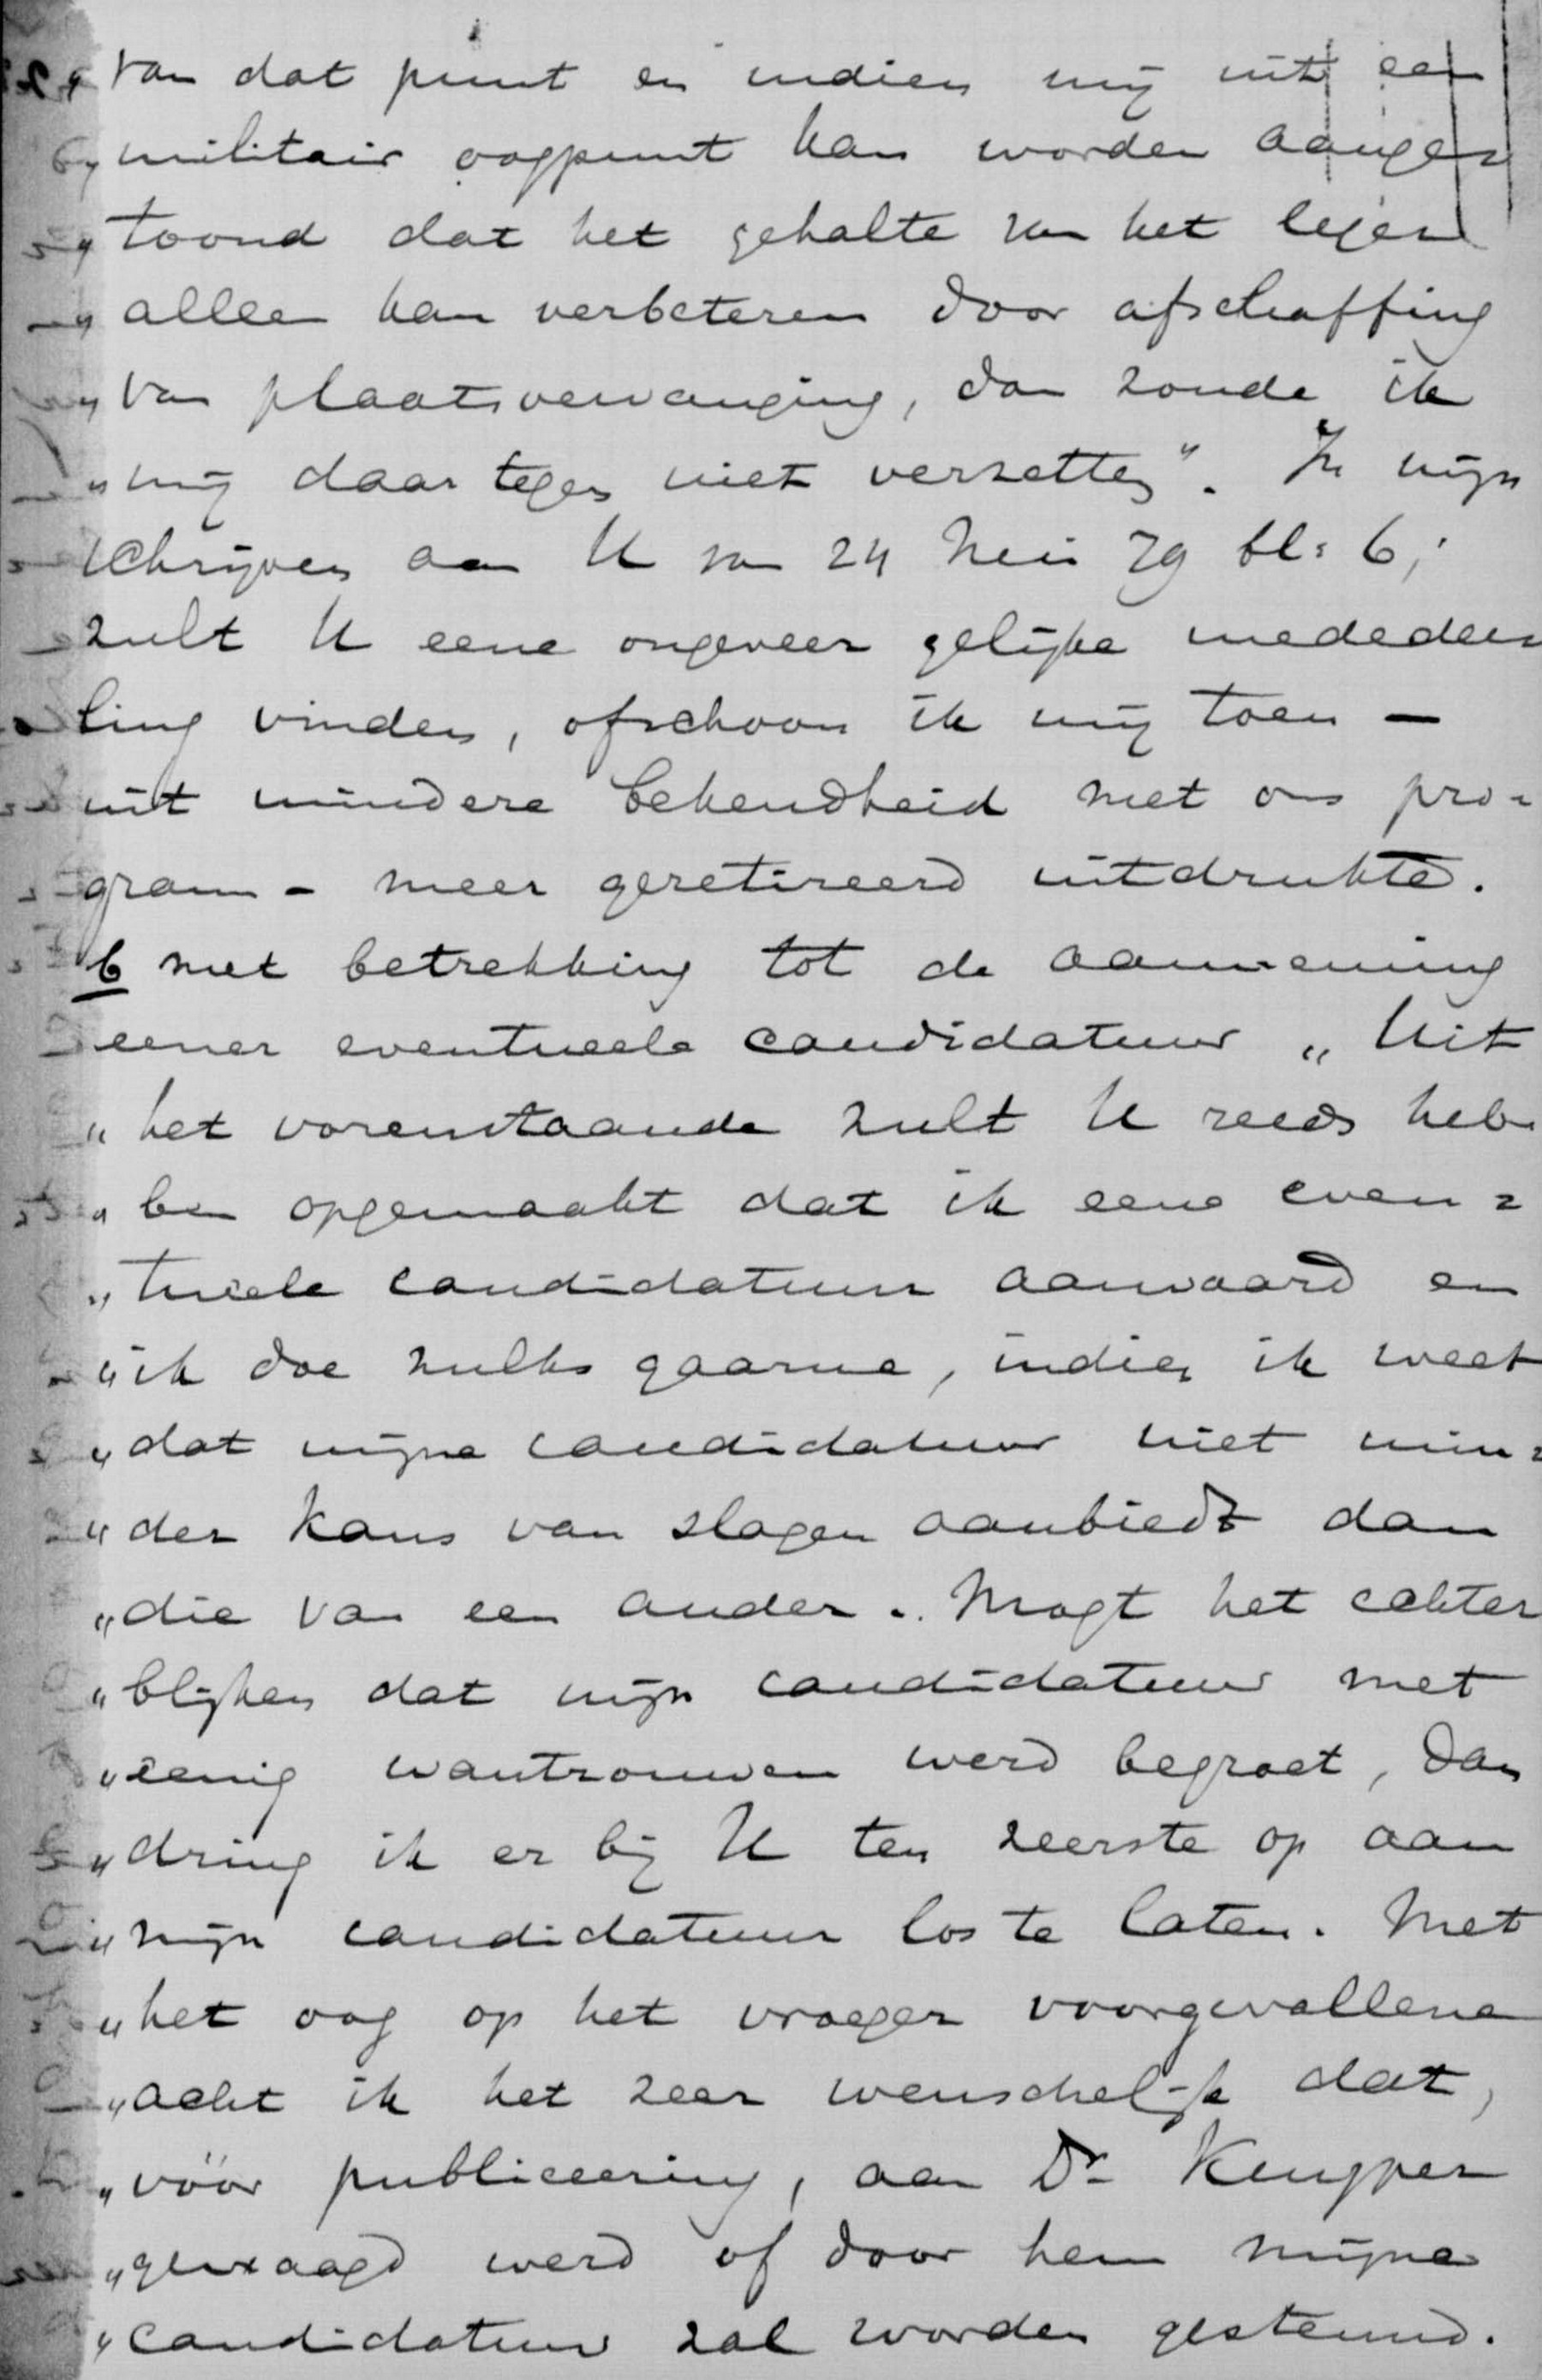 „van dat punt en indien mij uit een
„militair oogpunt kan worden aange=
„toond dat het gehalte van het leger
„alleen kan verbeteren door afschaffing
„van plaatsvervanging, dan zoude ik
„mij daar tegen niet verzetten". In mijn
schrijven aan U van 24 Mei 79 bl: 6,
zult U eene ongeveer gelijke mededee=
ling vinden, ofschoon ik mij toen —
uit mindere bekendheid met ons pro=
gram - meer geretireerd uitdrukte.
b met betrekking tot de aanneming
eener eventueele candidatuur „Uit
„het vorenstaande zult U reeds heb=
„ben opgemaakt dat ik eene even=
„tueele candidatuur aanvaard en
„ik doe zulks gaarne, indien ik weet
„dat mijne candidatuur niet min=
„der kans van slagen aanbiedt dan
„die van een ander. Mogt het echter
„blijken dat mijn candidatuur met
„eenig wantrouwen werd begroet, dan
„dring ik er bij U ten zeerste op aan
„mijn candidatuur los te laten. Met
„het oog op het vroeger voorgevallene
„acht ik het zeer wenschelijk dat,
„vóór publiceering, aan Dr Kuyper
„gevraagd werd of door hem mijne
„candidatuur zal worden gesteund.